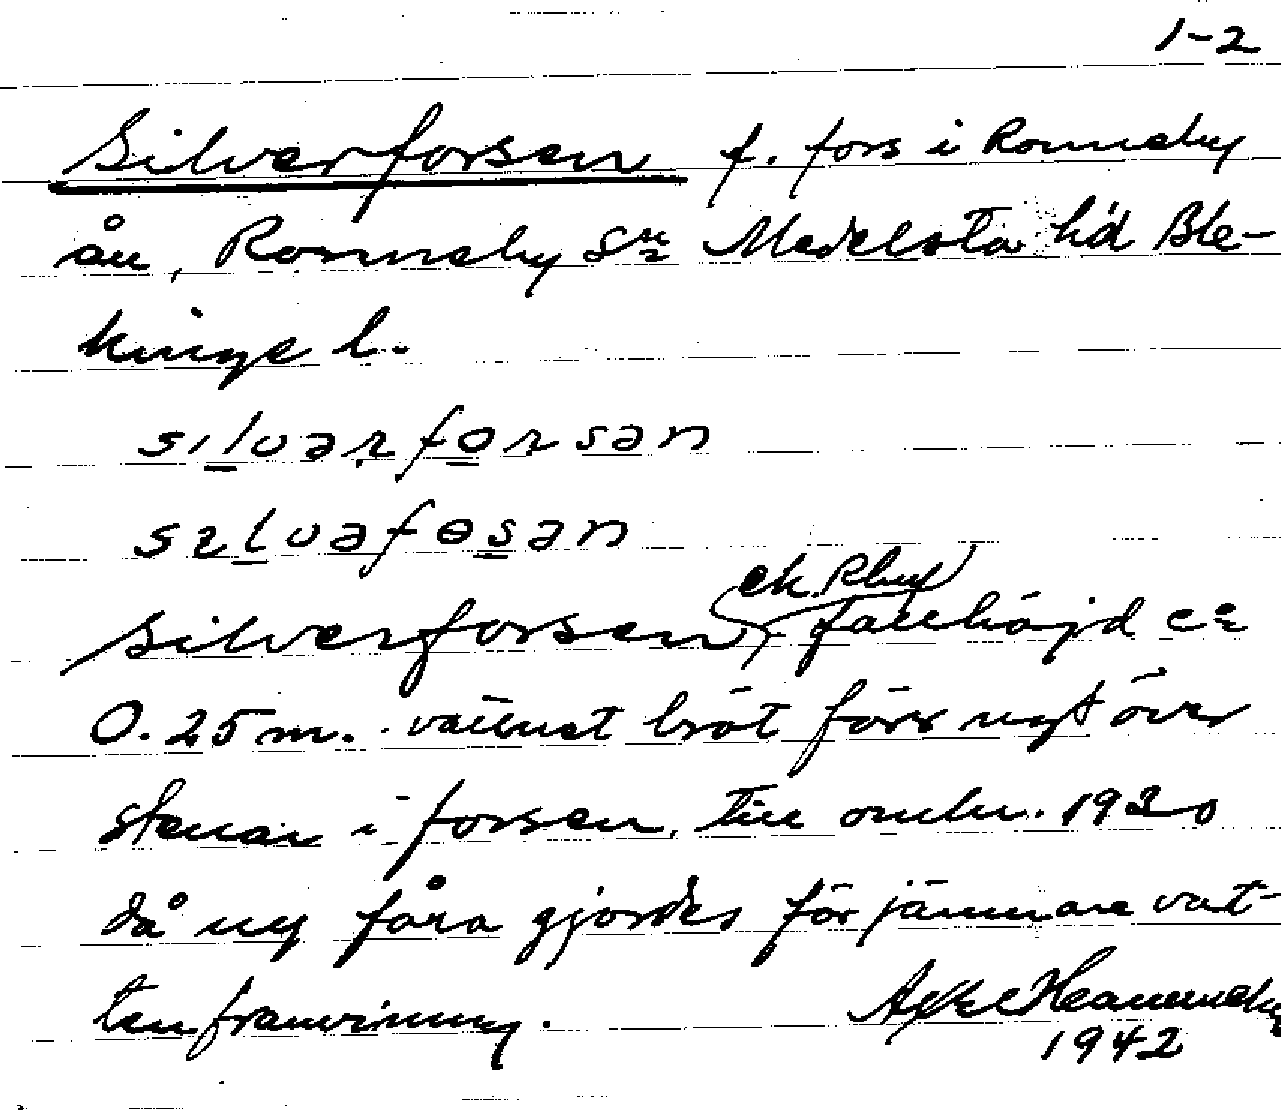 1-2
Silverforsen f. fors i Ronneby
ån, Ronneby Sn Medelsta hd Ble-
kinge l.
sılvərforsən
sɪlvəfosən
ek. Rbuf
Silverforsen, fallhöjd ca
0.25 m. vattnet bröt förr nytt över
stenar i forsen, till omkr. 1920
då ny fåra gjordes för jämnare vat-
tenframrinning. Axel
1942